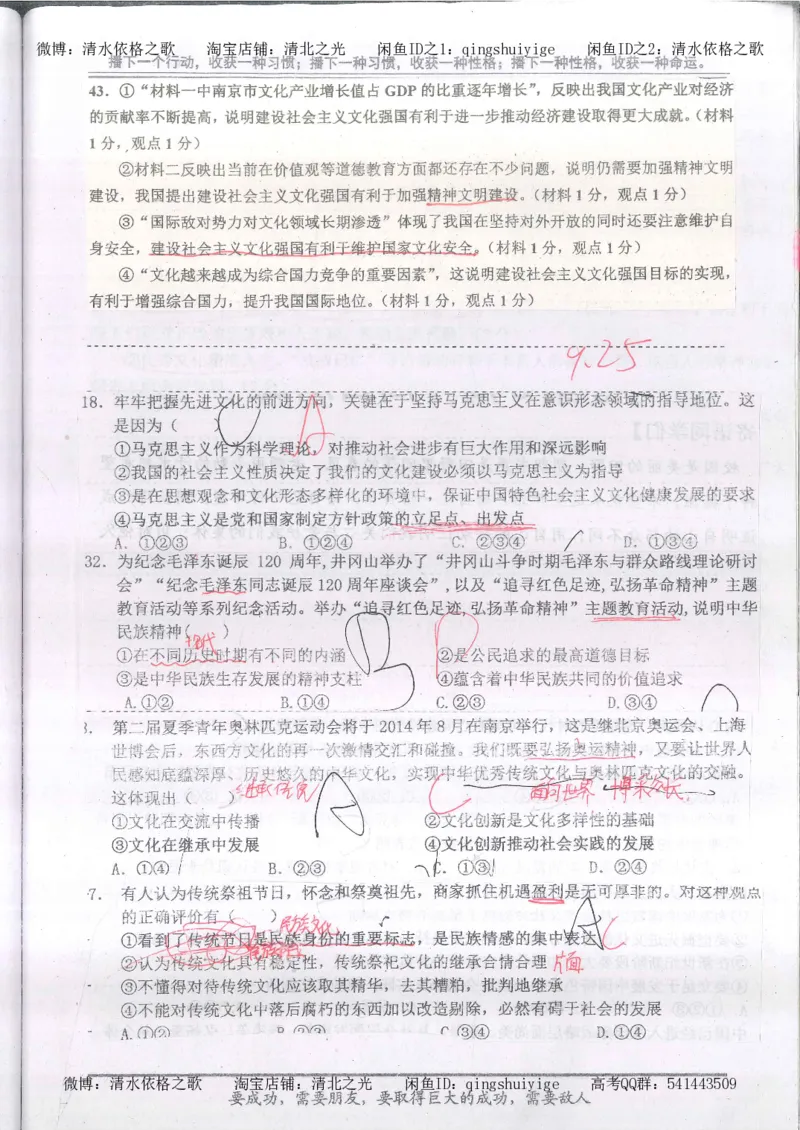 微博：清水依格之歌 淘宝店铺：清北之光 闲鱼ID之1：qingshuiyige 闲鱼ID之2：清水依格之歌
播下一个行动，收获一种习惯；播下一种习惯，收获一种性格；播下一种性格，收获一种命运。
43. ①“材料一中南京市文化产业增长值占 GDP 的比重逐年增长”，反映出我国文化产业对经济
的贡献率不断提高，说明建设社会主义文化强国有利于进一步推动经济建设取得更大成就。（材料
1 分，观点 1 分）
②材料二反映出当前在价值观等道德教育方面都还存在不少问题，说明仍需要加强精神文明
建设，我国提出建设社会主义文化强国有利于加强精神文明建设。（材料 1 分，观点 1 分）
③“国际敌对势力对文化领域长期渗透”体现了我国在坚持对外开放的同时还要注意维护自
身安全，建设社会主义文化强国有利于维护国家文化安全。（材料 1 分，观点 1 分）
④“文化越来越成为综合国力竞争的重要因素”，这说明建设社会主义文化强国目标的实现，
有利于增强综合国力，提升我国国际地位。（材料 1 分，观点 1 分）
9.25
18. 牢牢把握先进文化的前进方向，关键在于坚持马克思主义在意识形态领域的指导地位。这
是因为（
A
①马克思主义作为科学理论，对推动社会进步有巨大作用和深远影响
②我国的社会主义性质决定了我们的文化建设必须以马克思主义为指导
③是在思想观念和文化形态多样化的环境中，保证中国特色社会主义文化健康发展的要求
④马克思主义是党和国家制定方针政策的立足点、出发点
A. ①②③ B. ①②④ C. ②③④ D. ①③④
32. 为纪念毛泽东诞辰 120 周年，井冈山举办了“井冈山斗争时期毛泽东与群众路线理论研讨
会”“纪念毛泽东同志诞辰 120 周年座谈会”，以及“追寻红色足迹，弘扬革命精神”主题
教育活动等系列纪念活动。举办“追寻红色足迹，弘扬革命精神”主题教育活动，说明中华
民族精神( )
时代
B
①在不同历史时期有不同的内涵 ②是公民追求的最高道德目标
③是中华民族生存发展的精神支柱 ④蕴含着中华民族共同的价值追求
A.①② B.①④ C.②③ D.③④
3. 第二届夏季青年奥林匹克运动会将于 2014 年 8 月在南京举行，这是继北京奥运会、上海
世博会后，东西方文化的再一次激情交汇和碰撞。我们既要弘扬奥运精神，又要让世界人
民感知底蕴深厚、历史悠久的中华文化，实现中华优秀传统文化与奥林匹克文化的交融。
这体现出（ ）
继承传统 C 面向世界 博采众长
①文化在交流中传播 ②文化创新是文化多样性的基础
③文化在继承中发展 ④文化创新推动社会实践的发展
A. ①④ B. ②③ C. ①③ D. ②④
7. 有人认为传统祭祖节日，怀念和祭奠祖先，商家抓住机遇盈利是无可厚非的。对这种观点
的正确评价有（ ）
民族文化
A
C
①看到了传统节日是民族身份的重要标志，是民族情感的集中表达
②认为传统文化具有稳定性，传统祭祀文化的继承合情合理
片面
③不懂得对待传统文化应该取其精华，去其糟粕，批判地继承
④不能对传统文化中落后腐朽的东西加以改造剔除，必然有碍于社会的发展
A.①② B.②③ C.③④ D.①④
微博：清水依格之歌 淘宝店铺：清北之光 闲鱼ID：qingshuiyige 高考QQ群：541443509
要成功，需要朋友，要取得巨大的成功，需要敌人